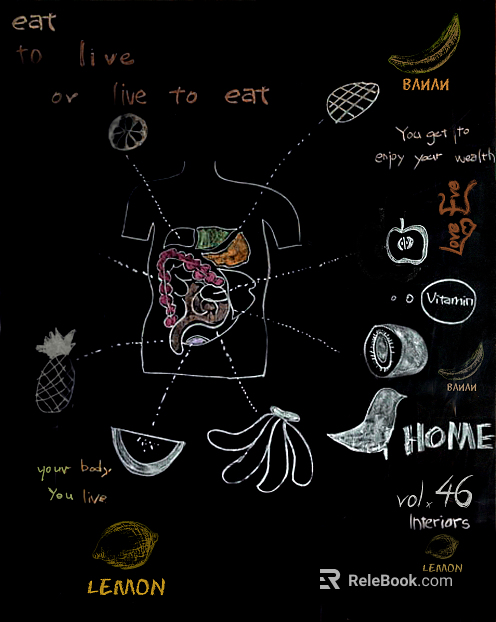 eat
to live
or live to eat
BAИAИ
You get to
enjoy your wealth
Love Five
Vitamin
BAИAИ
HOME
your body,
You live
vol. 46
Interiors
LEMON
LEMON
ReleBook.com